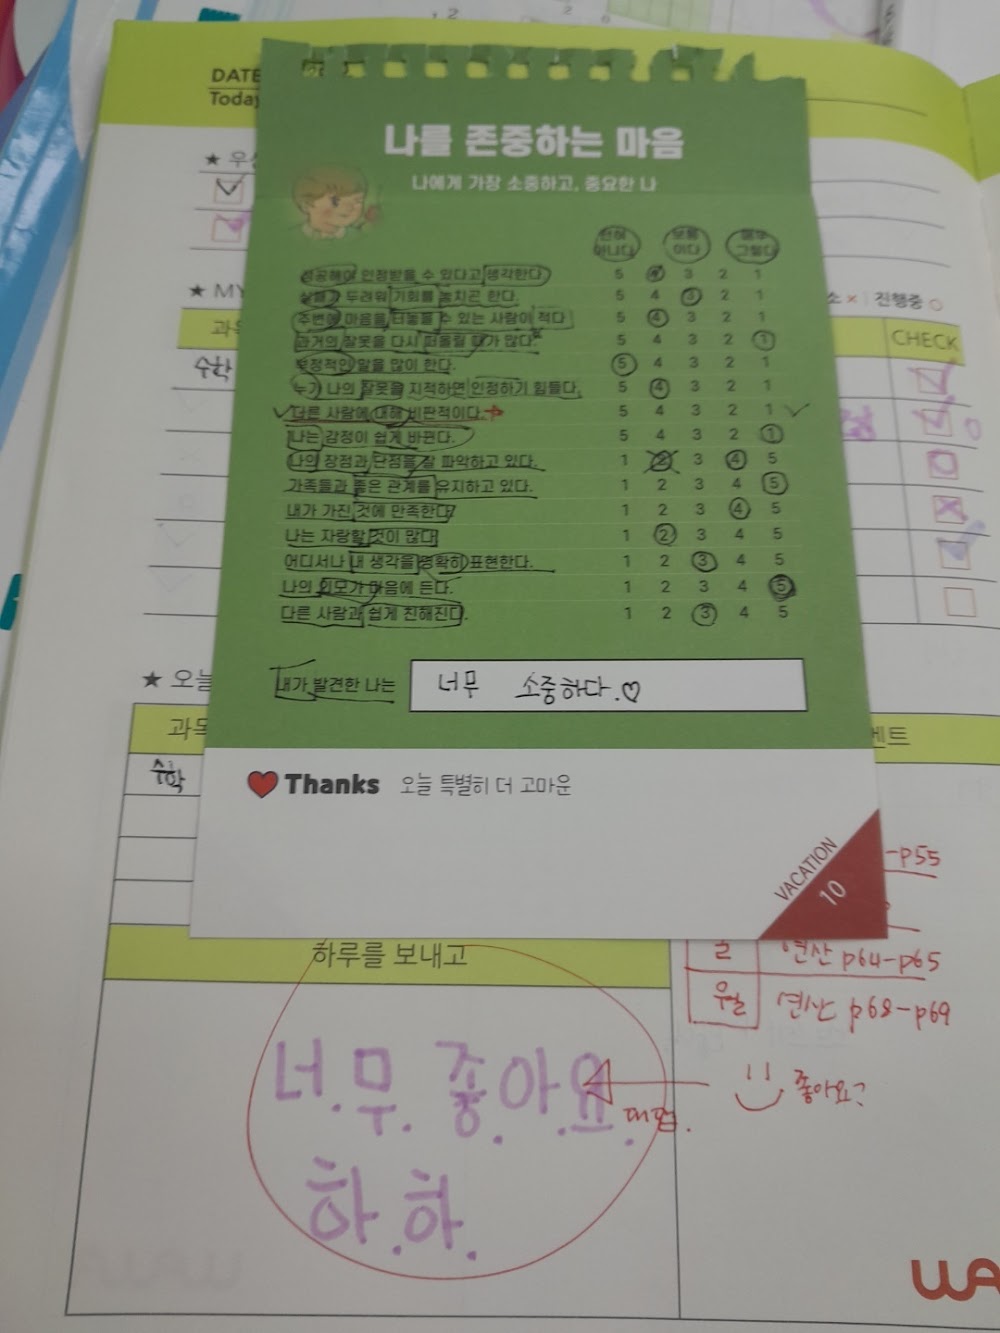 DATE
Today
나를 존중하는 마음
나에게 가장 소중하고, 중요한 나
전혀 아니다 보통 이다 매우 그렇다
성공해야 인정받을 수 있다고 생각한다. 5 4 3 2 1
실패가 두려워 기회를 놓치곤 한다. 5 4 3 2 1
주변에 마음을 터놓을 수 있는 사람이 적다. 5 4 3 2 1
과거의 잘못을 다시 떠올릴 때가 많다. 5 4 3 2 1
부정적인 말을 많이 한다. 5 4 3 2 1
누가 나의 잘못을 지적하면 인정하기 힘들다. 5 4 3 2 1
다른 사람에 대해 비판적이다. 5 4 3 2 1
나는 감정이 쉽게 바뀐다. 5 4 3 2 1
나의 장점과 단점을 잘 파악하고 있다. 1 2 3 4 5
가족들과 좋은 관계를 유지하고 있다. 1 2 3 4 5
내가 가진 것에 만족한다. 1 2 3 4 5
나는 자랑할 것이 많다. 1 2 3 4 5
어디서나 내 생각을 명확히 표현한다. 1 2 3 4 5
나의 외모가 마음에 든다. 1 2 3 4 5
다른 사람과 쉽게 친해진다. 1 2 3 4 5
내가 발견한 나는 너무 소중하다.♡
Thanks 오늘 특별히 더 고마운
VACATION
10
★ MY
진행중 ○
CHECK
수학
★ 오늘
수학
-p55
연산 p64-p65
월 연산 p68-p69
하루를 보내고
너.무.좋.아.요.
하.하.
좋아요?